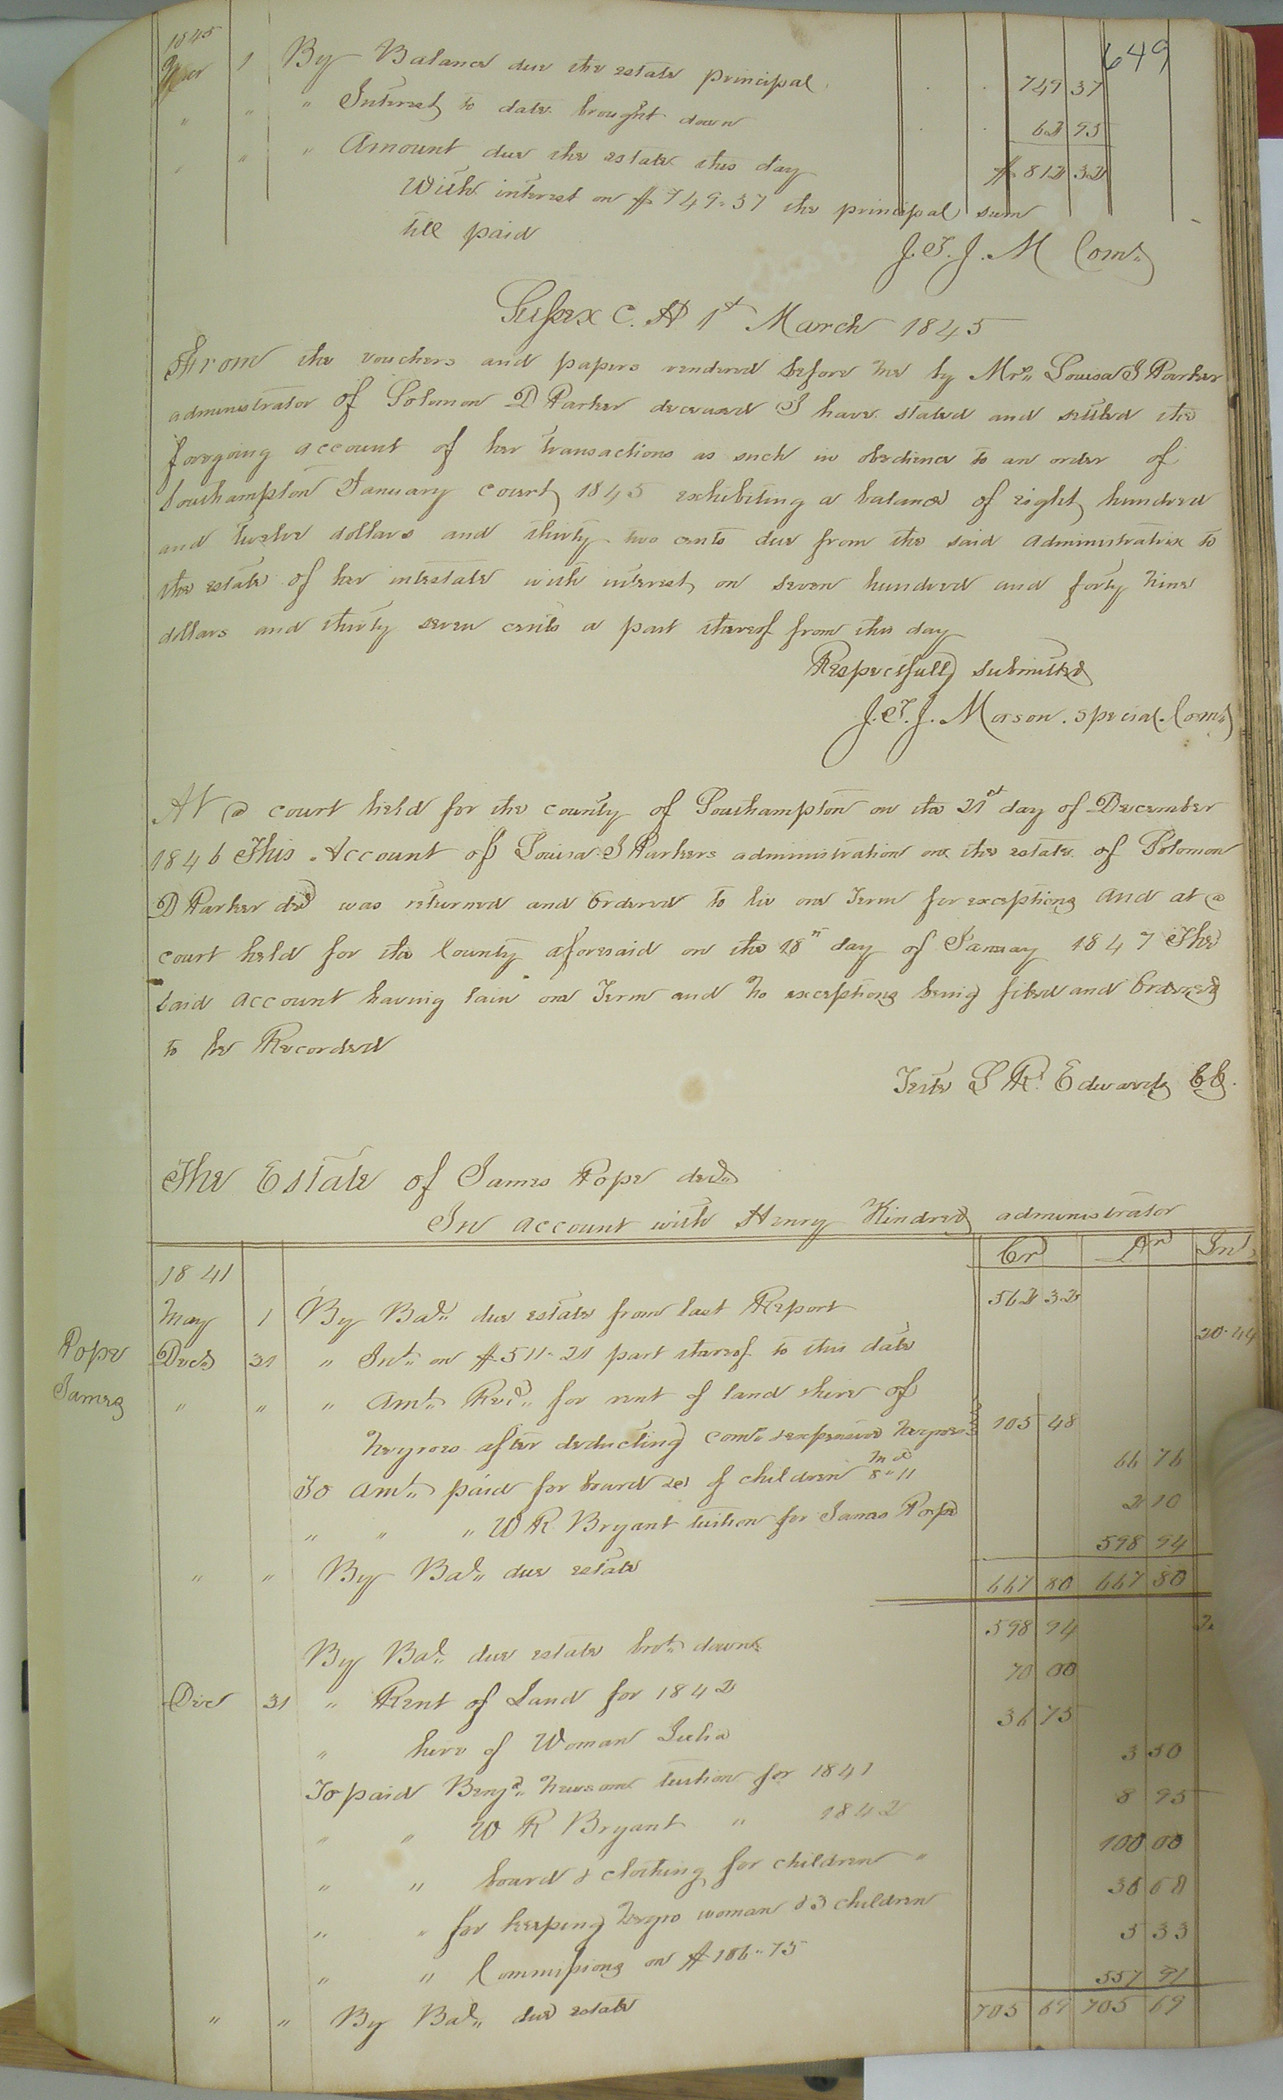 649
1845
Mar 1 By Balance due the estate principal 749 37
" " " Interest to date brought down 62 95
" " " Amount due the estate this day $812 32
With interest on $749.37 the principal sum
till paid
J. T. J. M Comr
Sussex C. H 1st March 1845
From the vouchers and papers rendered before me by Mrs. Louisa S Parker
administrator of Solomon D Parker deceased I have stated and settled the
foregoing account of her transactions as such in obedience to an order of
Southampton January court 1845 exhibiting a balance of eight hundred
and twelve dollars and thirty two cents due from the said administratrix to
the estate of her intestate with interest on seven hundred and forty nine
dollars and thirty seven cents a part thereof from this day
Respectfully submitted
J. T. J. Mason. special. Comr
At a court held for the county of Southampton on the 21st day of December
1846 This Account of Louisa S Parkers administration on the estate of Solomon
D Parker decd was returned and Ordered to lie one Term for exceptions And at a
court held for the County aforesaid on the 18th day of January 1847 The
said account having lain one Term and no exceptions being filed and Ordered
to be Recorded
Teste L R. Edwards CC.
The Estate of James Pope decd
In account with Henry Kindred administrator
Cr Dr Int
1841
May 1 By Bal. due estate from last Report 562 32
Pope
James
Decr 31 " Int. on $511.21 part thereof to this date 20.44
" " " Amt. Recd. for rent of land & hire of
negroes after deducting comr & expensive negroes 105 48
To Amt. paid for board &c of children 8 m 11 d 66 76
" " " W R Bryant tuition for James Pope 2 10
" " By Bal. due estate 598 94
667 80 667 80
By Bal. due estate brot. down 598 94
Dec 31 " Rent of Land for 1842 70 00
" hire of Woman Julia 36 75
To paid Benja. Newsom tuition for 1841 3 50
" " W R Bryant " 1842 8 95
" " board & clothing for children " 100 00
" " for keeping negro woman & 3 children 30 00
" " Commissions on $106.75 5 33
" " By Bal. due estate 557 91
705 69 705 69